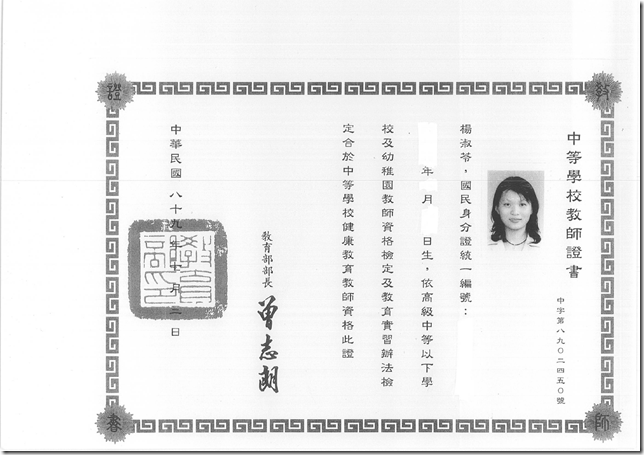 中等學校教師證書
中字第八九〇二四五〇號
楊淑苓，國民身分證統一編號：
年　月　日生，依高級中等以下學
校及幼稚園教師資格檢定及教育實習辦法檢
定合於中等學校健康教育教師資格此證
教育部部長 曾志朗
中華民國 八十九年 月 日
教
師
證
書